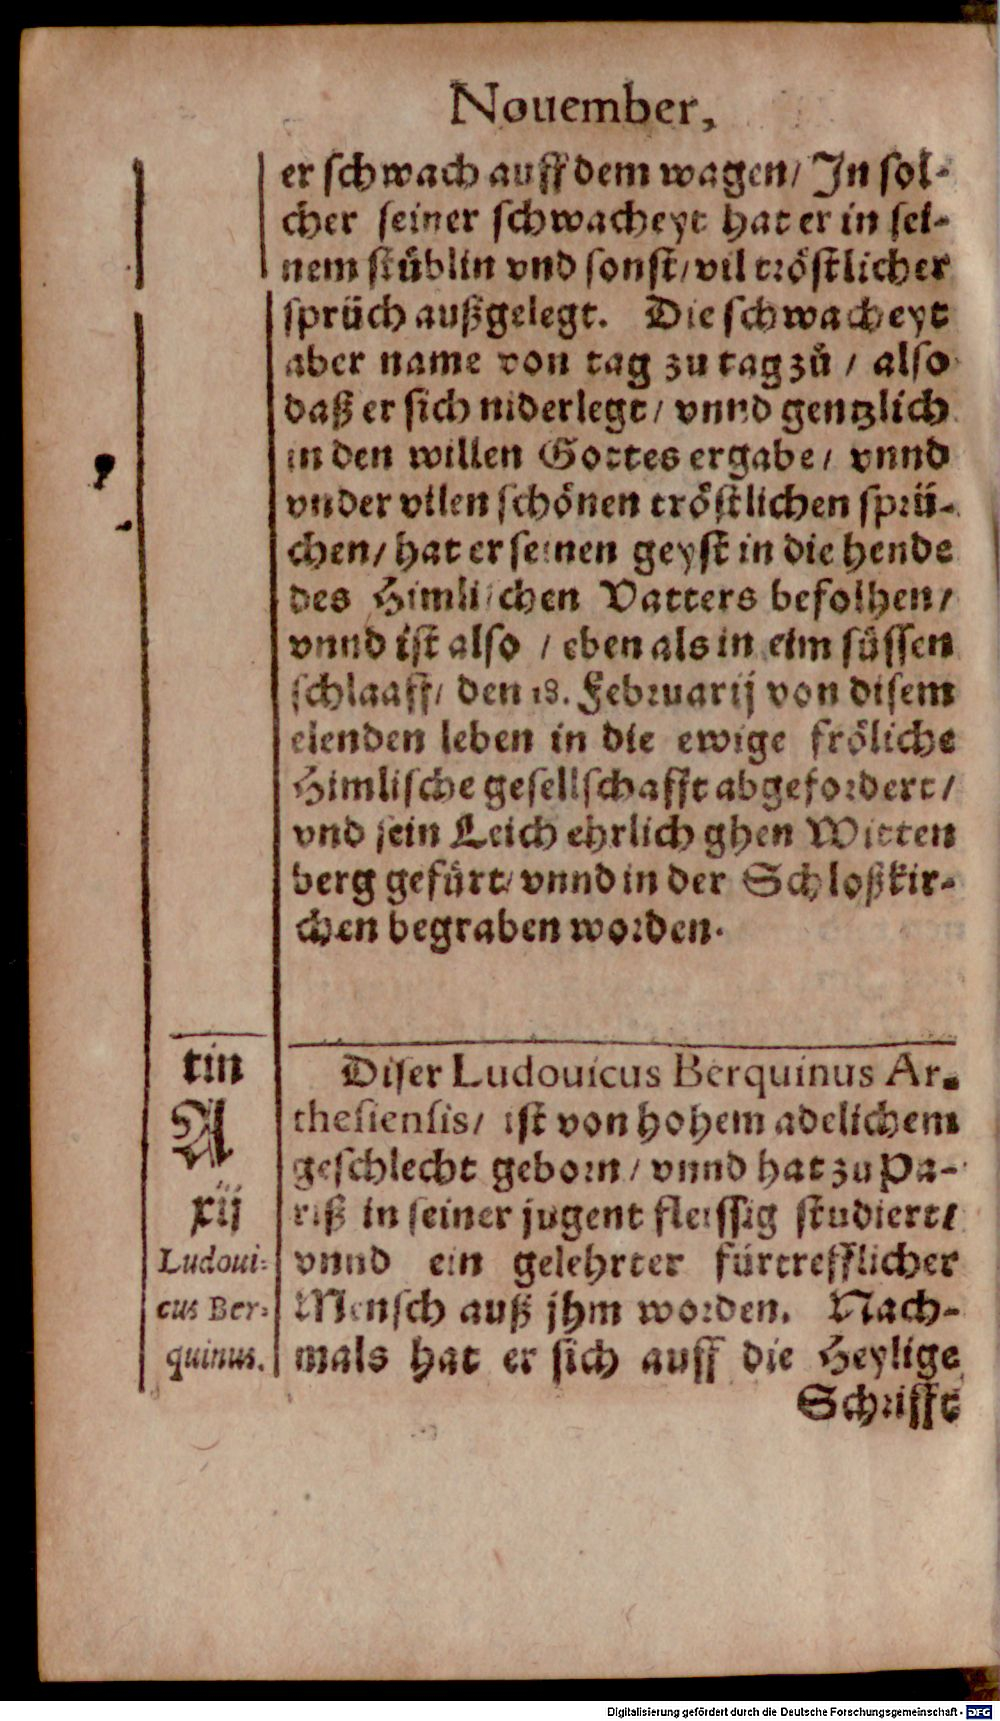 Nouember,
er schwach auff dem wagen/ Jn sol-
cher seiner schwacheyt hat er in sei-
nem stüblin vnd sonst/ vil tröstlicher
sprüch außgelegt. Die schwacheyt
aber name von tag zu tag zů / also
daß er sich niderlegt/ vnnd gentzlich
in den willen Gottes ergabe/ vnnd
vnder vilen schönen tröstlichen sprü-
chen/ hat er seinen geyst in die hende
des Himlischen Vatters befolhen/
vnnd ist also / eben als in eim süssen
schlaaff/ den 18. Februarij von disem
elenden leben in die ewige fröliche
Himlische gesellschafft abgefordert/
vnd sein Leich ehrlich ghen Witten
berg gefürt/ vnnd in der Schloßkir-
chen begraben worden.
tin
A
xij
Ludoui-
cus Ber-
quinus.
Diser Ludouicus Berquinus Ar-
thesiensis/ ist von hohem adelichem
geschlecht geborn/ vnnd hat zu Pa-
riß in seiner jugent fleissig studiert/
vnnd ein gelehrter fürtrefflicher
Mensch auß jhm worden. Nach-
mals hat er sich auff die Heylige
Schrifft
Digitalisierung gefördert durch die Deutsche Forschungsgemeinschaft - DFG